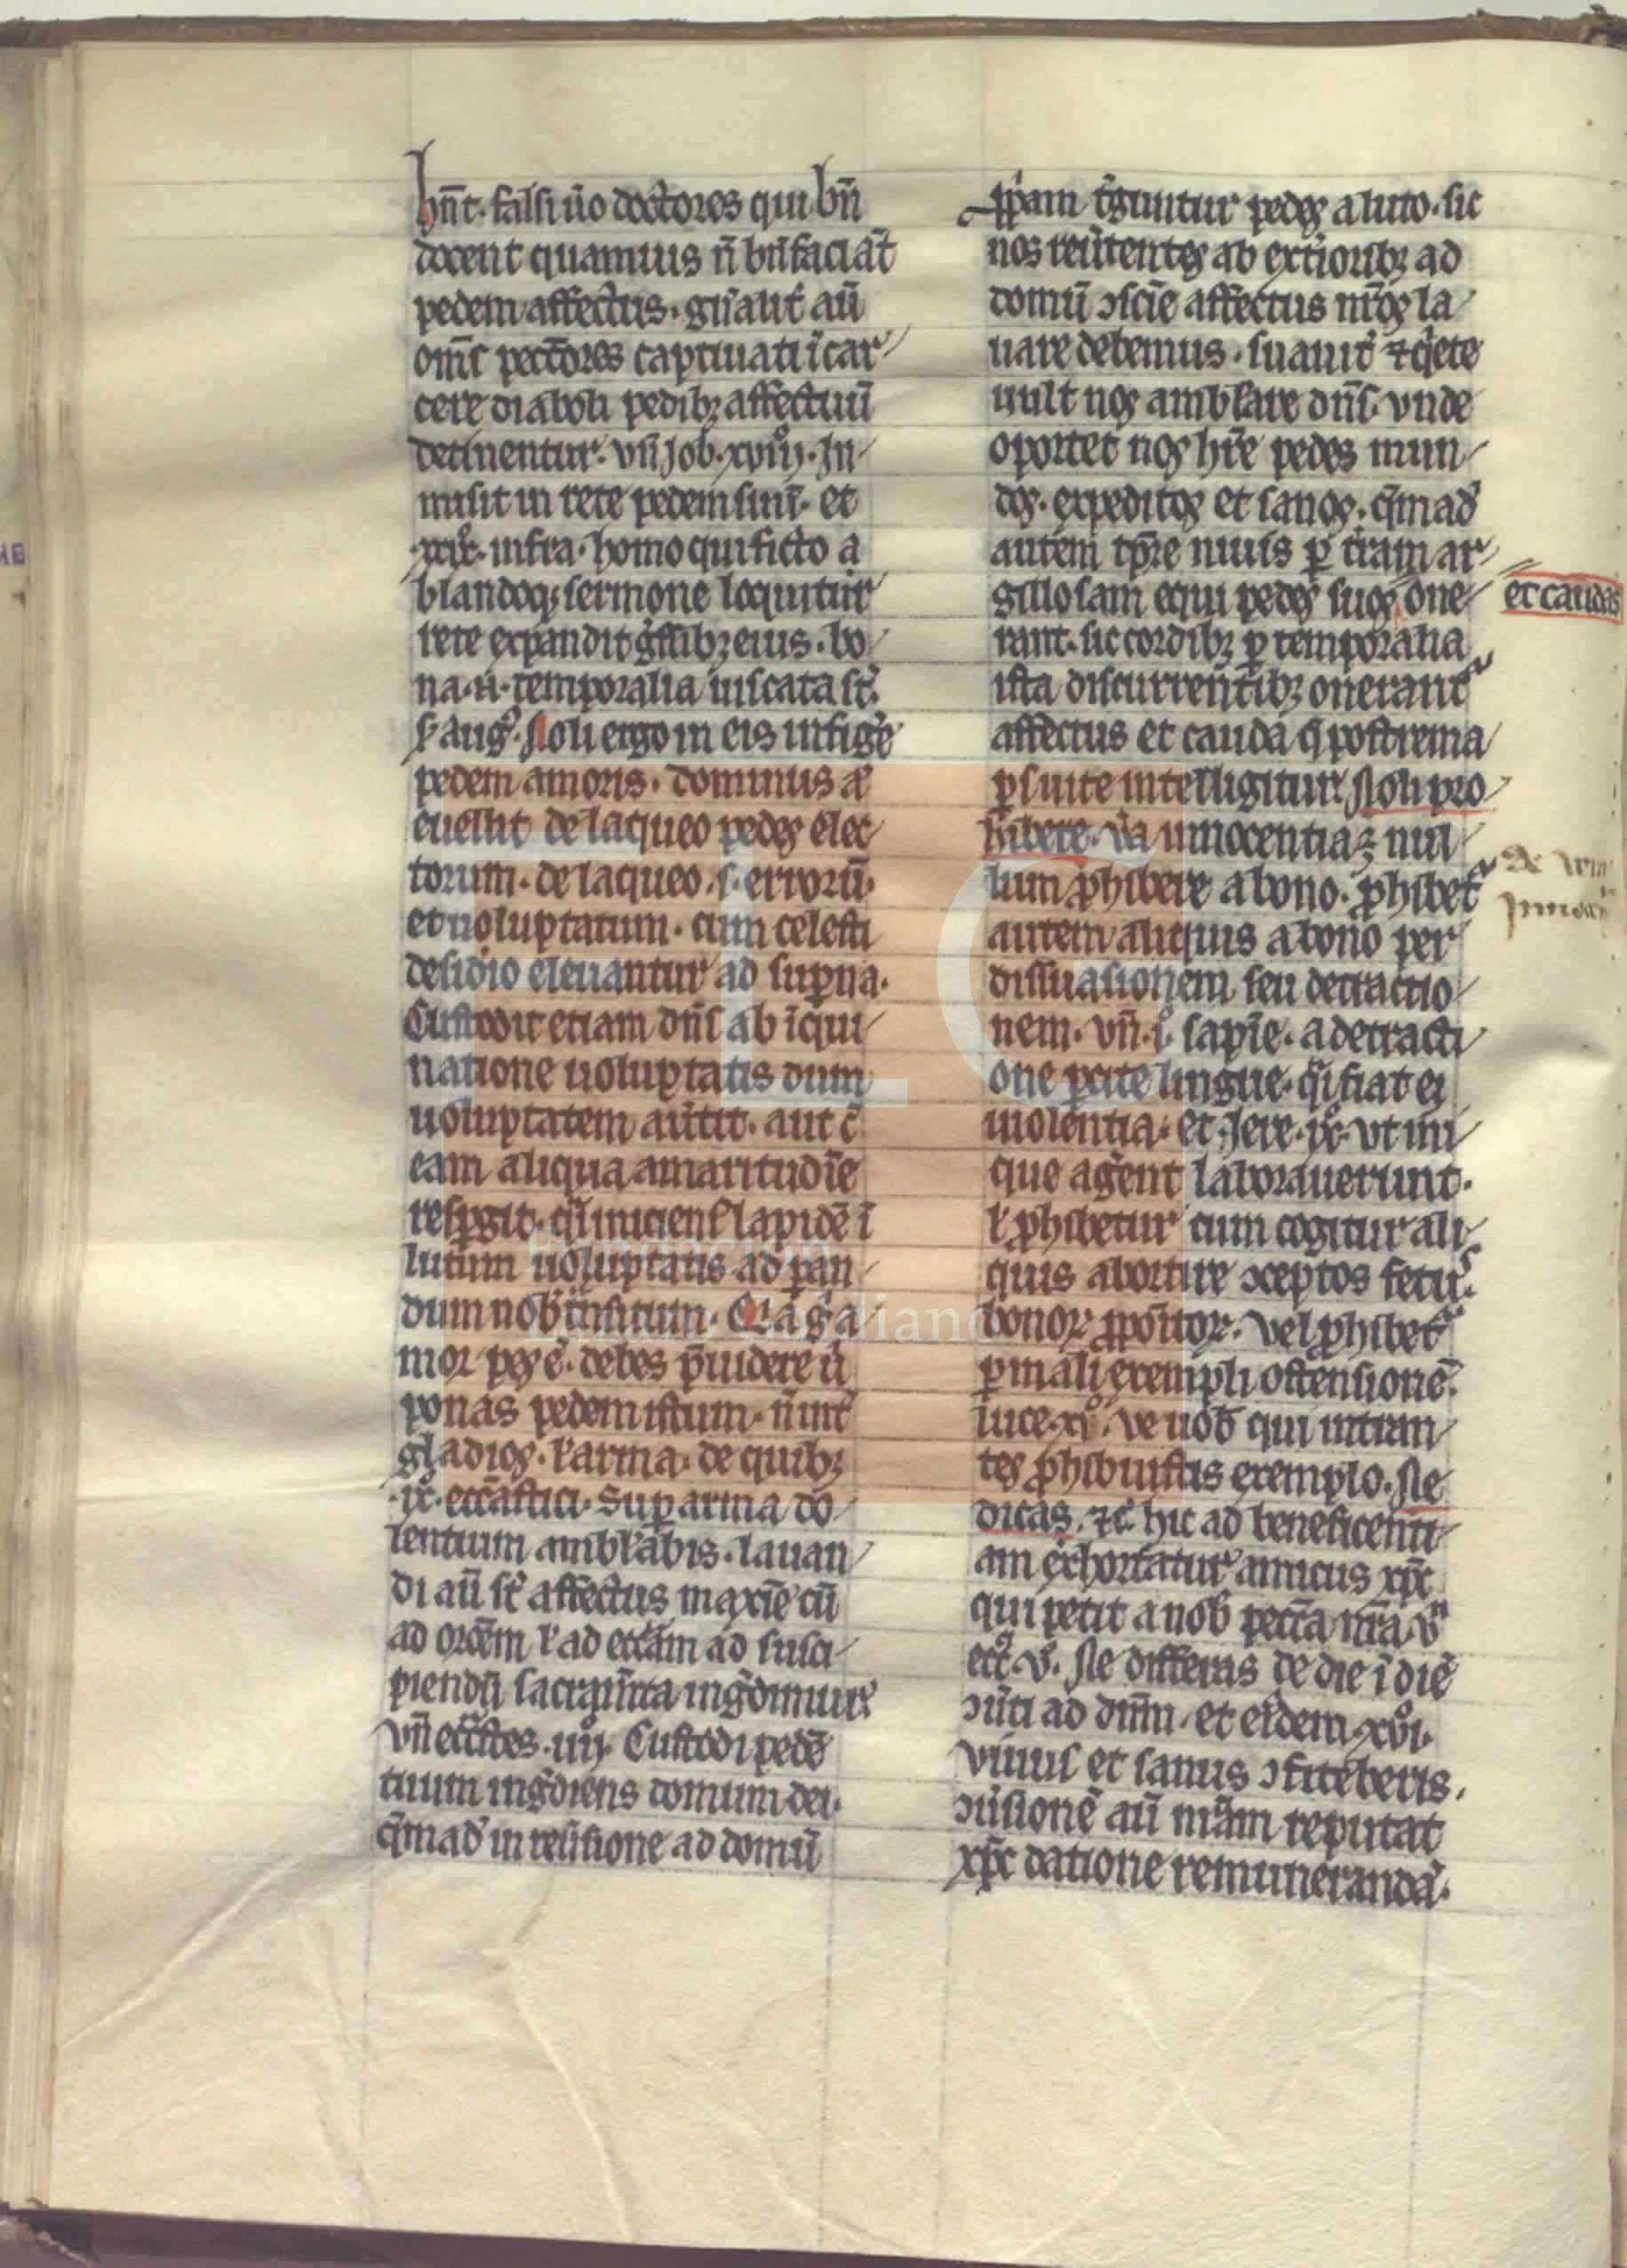 hn̄t. falsi ṽo doctores qui bn̄
docent quamuis n̄ bn̄ faciāt
pedem affectus. gn̄alit̛ aū
om̄s pecc̄ores captiuati ī car
cere diaboli pedibꝫ affectuū
detinentur. vn̄ Job. xviij. In
misit in rete pedem suū. et
infra. homo qui ficto a
blandoqꝫ sermone loquitur
rete expandit gͥssibꝫ eius. bo
na. n̄. temporalia uiscata st̄.
Aug᷒. Noli ergo in eis infiḡe
pedem amoris. dominus
euellit de laqueo pedes elec
torum. de laqueo .s. errorū.
et uoluptatum. cum celesti
desid̛io eleuantur ad suꝑna.
Custodit etiam dn̄s ab īqui
natione uoluptatis dum
uoluptatem aūtit. aut c̄
eam aliqua amaritudīe
resꝑgit. qͥ iniciens lapidē ī
lutum uoluptatis ad
dum nob̄ tͣnsitum.
mor pes ē. debes p̄uidere ū
ponas pedem istum. n̄ int̛
gladios. ł arma. de quibꝫ
.ix. ecc̄astici. Suꝑ arma do
lentium ambl̄abis. lauan
di aū st̄ affectus maxīe cū
ad orōem ł ad ecc̄am ad susci
piendū sacram̄ta ingͣdimur.
vn̄ ecc̄astes .iiij. Custodi pedē
tuum ingͣdiens domum dei.
qͣmad̛ in reūsione ad domū
ꝓpͥam t̛guntur pedes a luto. sic
nos reūtentes ab ext̛ioribꝫ ad
domū ꝯscīe affectus nr̄os la
uare debemus. suauit̛ ⁊ qͥete
uult nos amblare dn̄s. vnde
oportet nos hr̄e pedes mun
dos. expeditos et sanos. qͣmad̛
autem tp̄re niuis ꝑ t̛ram ar
gillosam equi pedes suos one
et caudas
rant. sic cordibꝫ ꝑ temporalia
ista discurrentibꝫ onerant̛
affectus et cauda qͥ postrema
intelligitur. Noli pro
hibere. innocentia ꝫ nul
lum ꝓhibere a bono. ꝓhibet̛
autem aliquis a bono per
dissuasionem seu detractio
nem. vn̄. i. sapīe. a detracti
one ꝑcite lingue. qͥ fiat ei
uiolentia. et Jere. ix. vt ini
que aḡent laborauerunt.
ł ꝓhibetur cum cogitur ali
quis abortire ꝯceptos fetus
bonoꝝ ꝓpoītoꝝ. vel ꝓhibet̛
ꝑ mali exempli ostensionē.
luce. xi. ve uob̄ qui intran
tes ꝓhibuistis exemplo. Ne
dicas. ⁊c̄. hic ad beneficenti
am exhortatur amicus xp̄c
qui petit a nob̄ pecc̄a nr̄a. vn̄
ecc̄. v. Ne differas de die ī diē
ꝯūti ad dn̄m. et eid̛dem. xvij.
viuus et sanus ꝯfiteberis.
ꝯūsionē aū nr̄am reputat
xp̄c datione remuneranda.